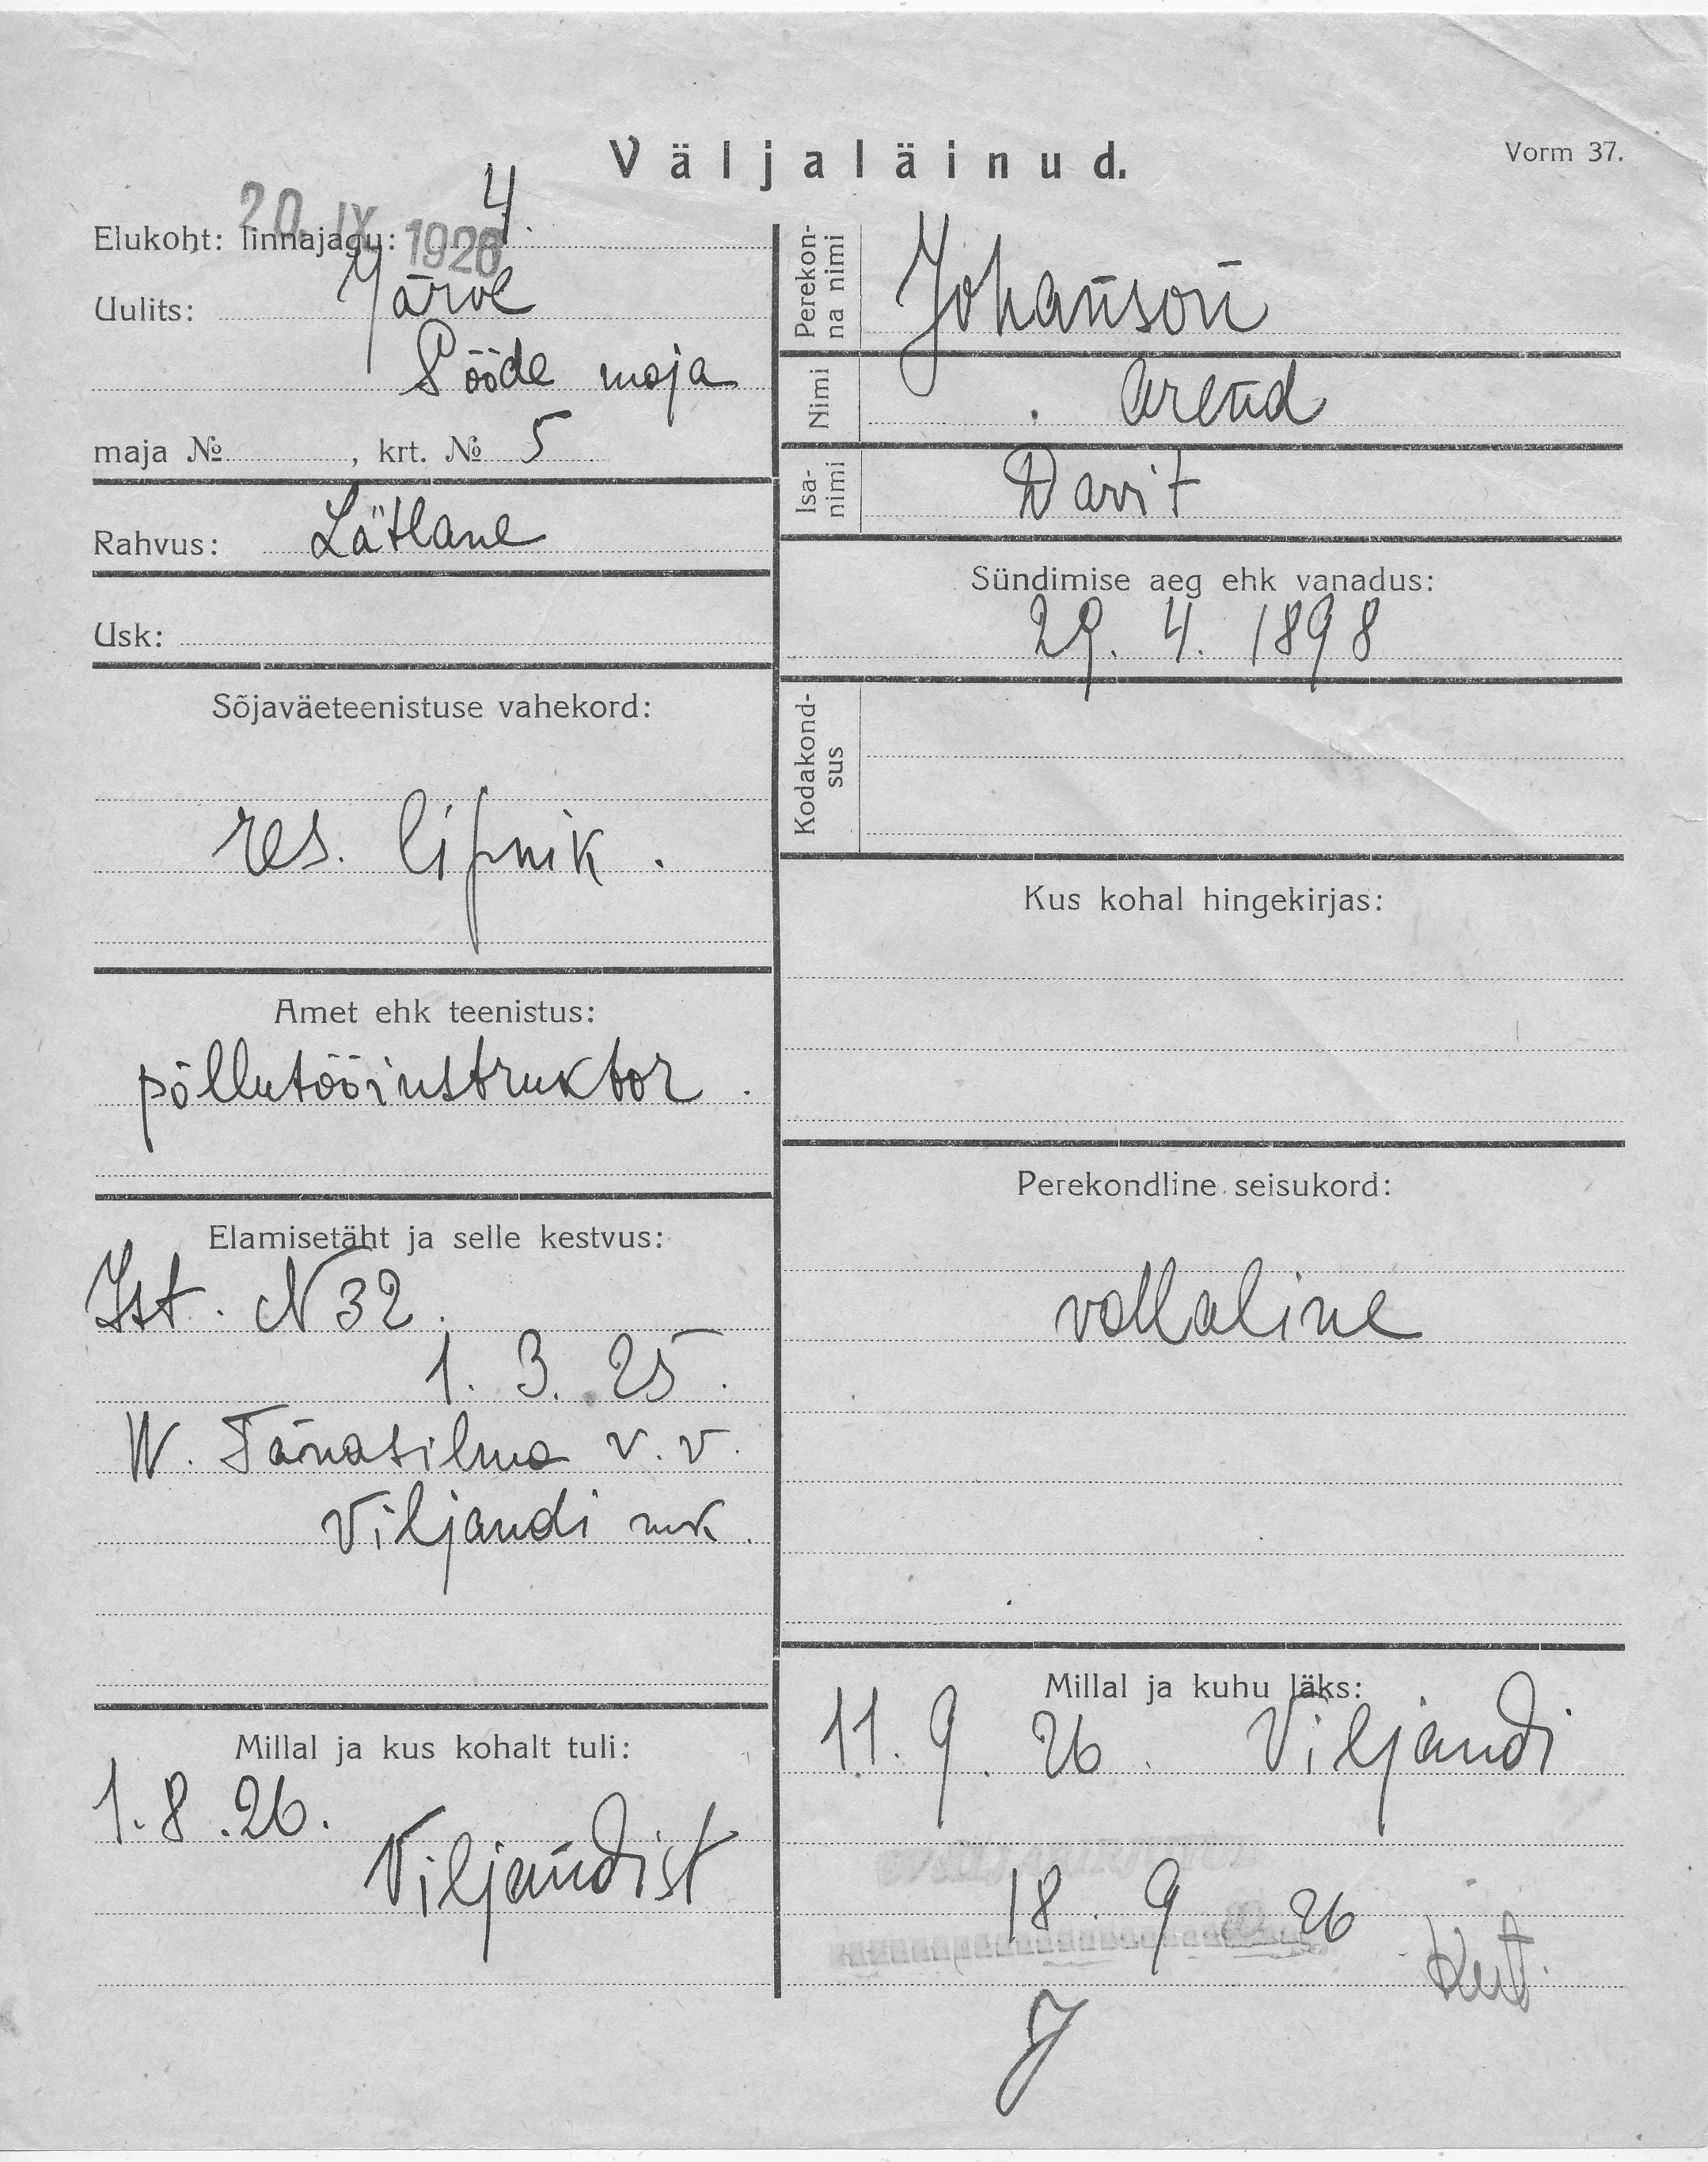 Väljaläinud.
Vorm 37.
20. IX 1926
Elukoht: linnajagu: 4.
Uulits: Järve
Pööde maja
maja №, krt. № 5
Rahvus: Lätlane
Usk:
Sõjaväeteenistuse vahekord:
res. lipnik.
Amet ehk teenistus:
põllutööinstruktor.
Elamisetäht ja selle kestvus:
Ist. N 32.
1. 3. 25.
W. Tänasilma v. v.
Viljandi mk.
Millal ja kus kohalt tuli:
1. 8. 26.
Viljandist
Perekon-
na nimi
Johanson
Nimi
Arend
Isa-
nimi
Davit
Sündimise aeg ehk vanadus:
29. 4. 1898
Kodakond-
sus
Kus kohal hingekirjas:
Perekondline seisukord:
vallaline
Millal ja kuhu läks:
11. 9. 26. Viljandi
18. 9 26